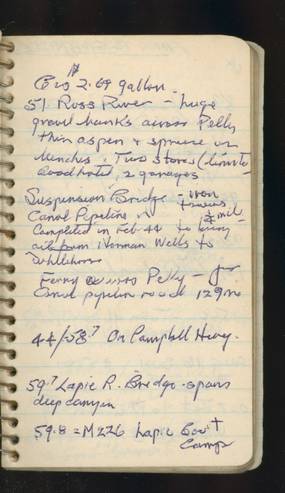 Gas 2.69 gallon
51 Ross River - huge
gravel banks across Pelly
thin aspen & spruce on
benches. Two stores (limited)
Good hotel, 2 garages
Suspension Bridge - iron
towers
Canol Pipeline, ¼ mile
Completed in Feb 44 to bring
oil from Norman Wells to
Whitehorse
Ferry across Pelly - for
Canol pipeline road 129m
44/58.7 On Campbell Hiway.
59.7 Lapie R. Bridge - spans
deep canyon
59.8 = M226 Lapie Gov't
Camp